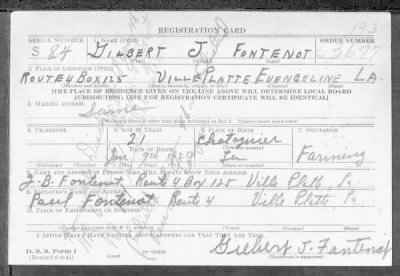 REGISTRATION CARD
SERIAL NUMBER 1. NAME (Print) ORDER NUMBER
S 84 GILBERT J FONTENOT 3677
(First) (Middle) (Last)
2. PLACE OF RESIDENCE (Print)
ROUTE 4 BOX 125 VILLE PLATTE EVENGELINE LA.
(Number and street) (Town, township, village, or city) (County) (State)
[THE PLACE OF RESIDENCE GIVEN ON THE LINE ABOVE WILL DETERMINE LOCAL BOARD
JURISDICTION; LINE 2 OF REGISTRATION CERTIFICATE WILL BE IDENTICAL]
3. MAILING ADDRESS
Same
4. TELEPHONE 5. AGE IN YEARS 6. PLACE OF BIRTH 7. OCCUPATION
21 Chataignier
DATE OF BIRTH
Jan 9th 1920 La Farming
(Exchange) (Number) (Mo.) (Day) (Yr.) (State or country)
8. NAME AND ADDRESS OF PERSON WHO WILL ALWAYS KNOW YOUR ADDRESS
J. B. Fontenot Route 4 Box 125 Ville Platte, La
9. EMPLOYER'S NAME AND ADDRESS
Paul Fontenot Route 4 Ville Platte La.
10. PLACE OF EMPLOYMENT OR BUSINESS
I AFFIRM THAT I HAVE VERIFIED ABOVE ANSWERS AND THAT THEY ARE TRUE.
D. S. S. Form 1
(Revised 6-9-41)
Gilbert J. Fontenot